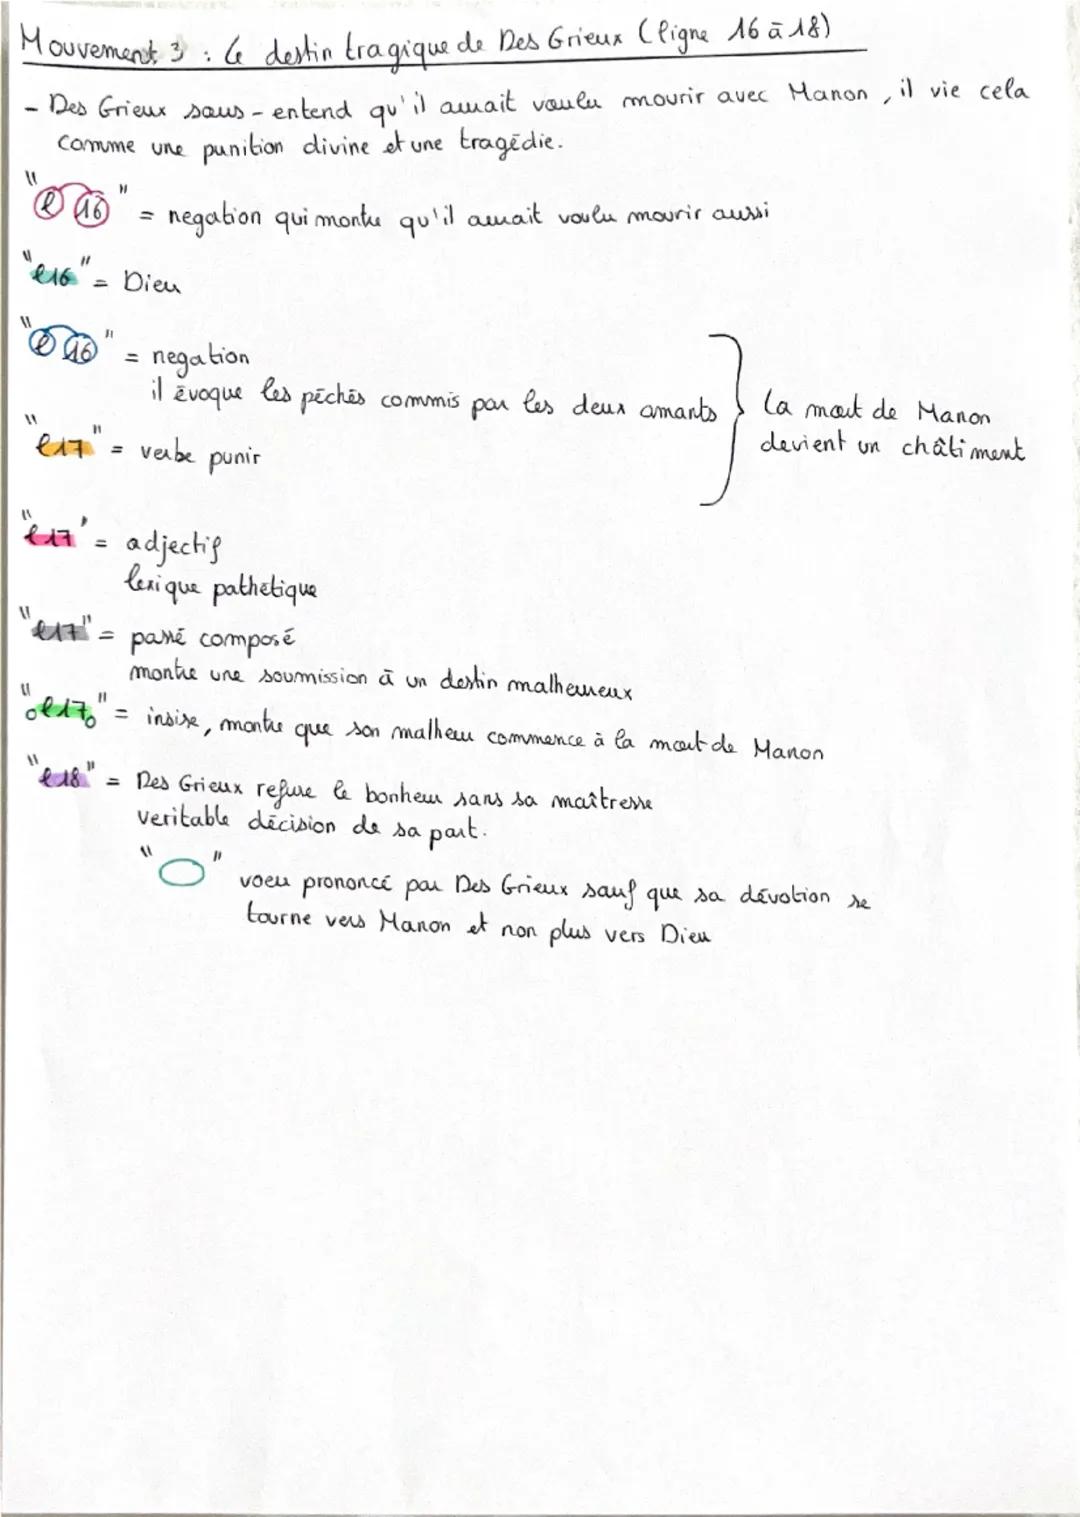 Mouvement 3 : Le destin tragique de Des Grieux (ligne 16 à 18)
- Des Grieux sous-entend qu'il aurait voulu mourir avec Manon, il vie cela
comme une punition divine et une tragédie.
"l 16" = negation qui montre qu'il aurait voulu mourir aussi
"l16" = Dieu
"l 16" = negation
il évoque les péchés commis par les deux amants
"l17" = verbe punir
La mort de Manon
devient un châtiment
"l17" = adjectif
lexique pathétique
"l17" = passé composé
montre une soumission à un destin malheureux
"l17" = insise, montre que son malheur commence à la mort de Manon
"l18" = Des Grieux refuse le bonheur sans sa maîtresse
veritable décision de sa part.
" " voeu prononcé par Des Grieux sauf que sa dévotion se
tourne vers Manon et non plus vers Dieu